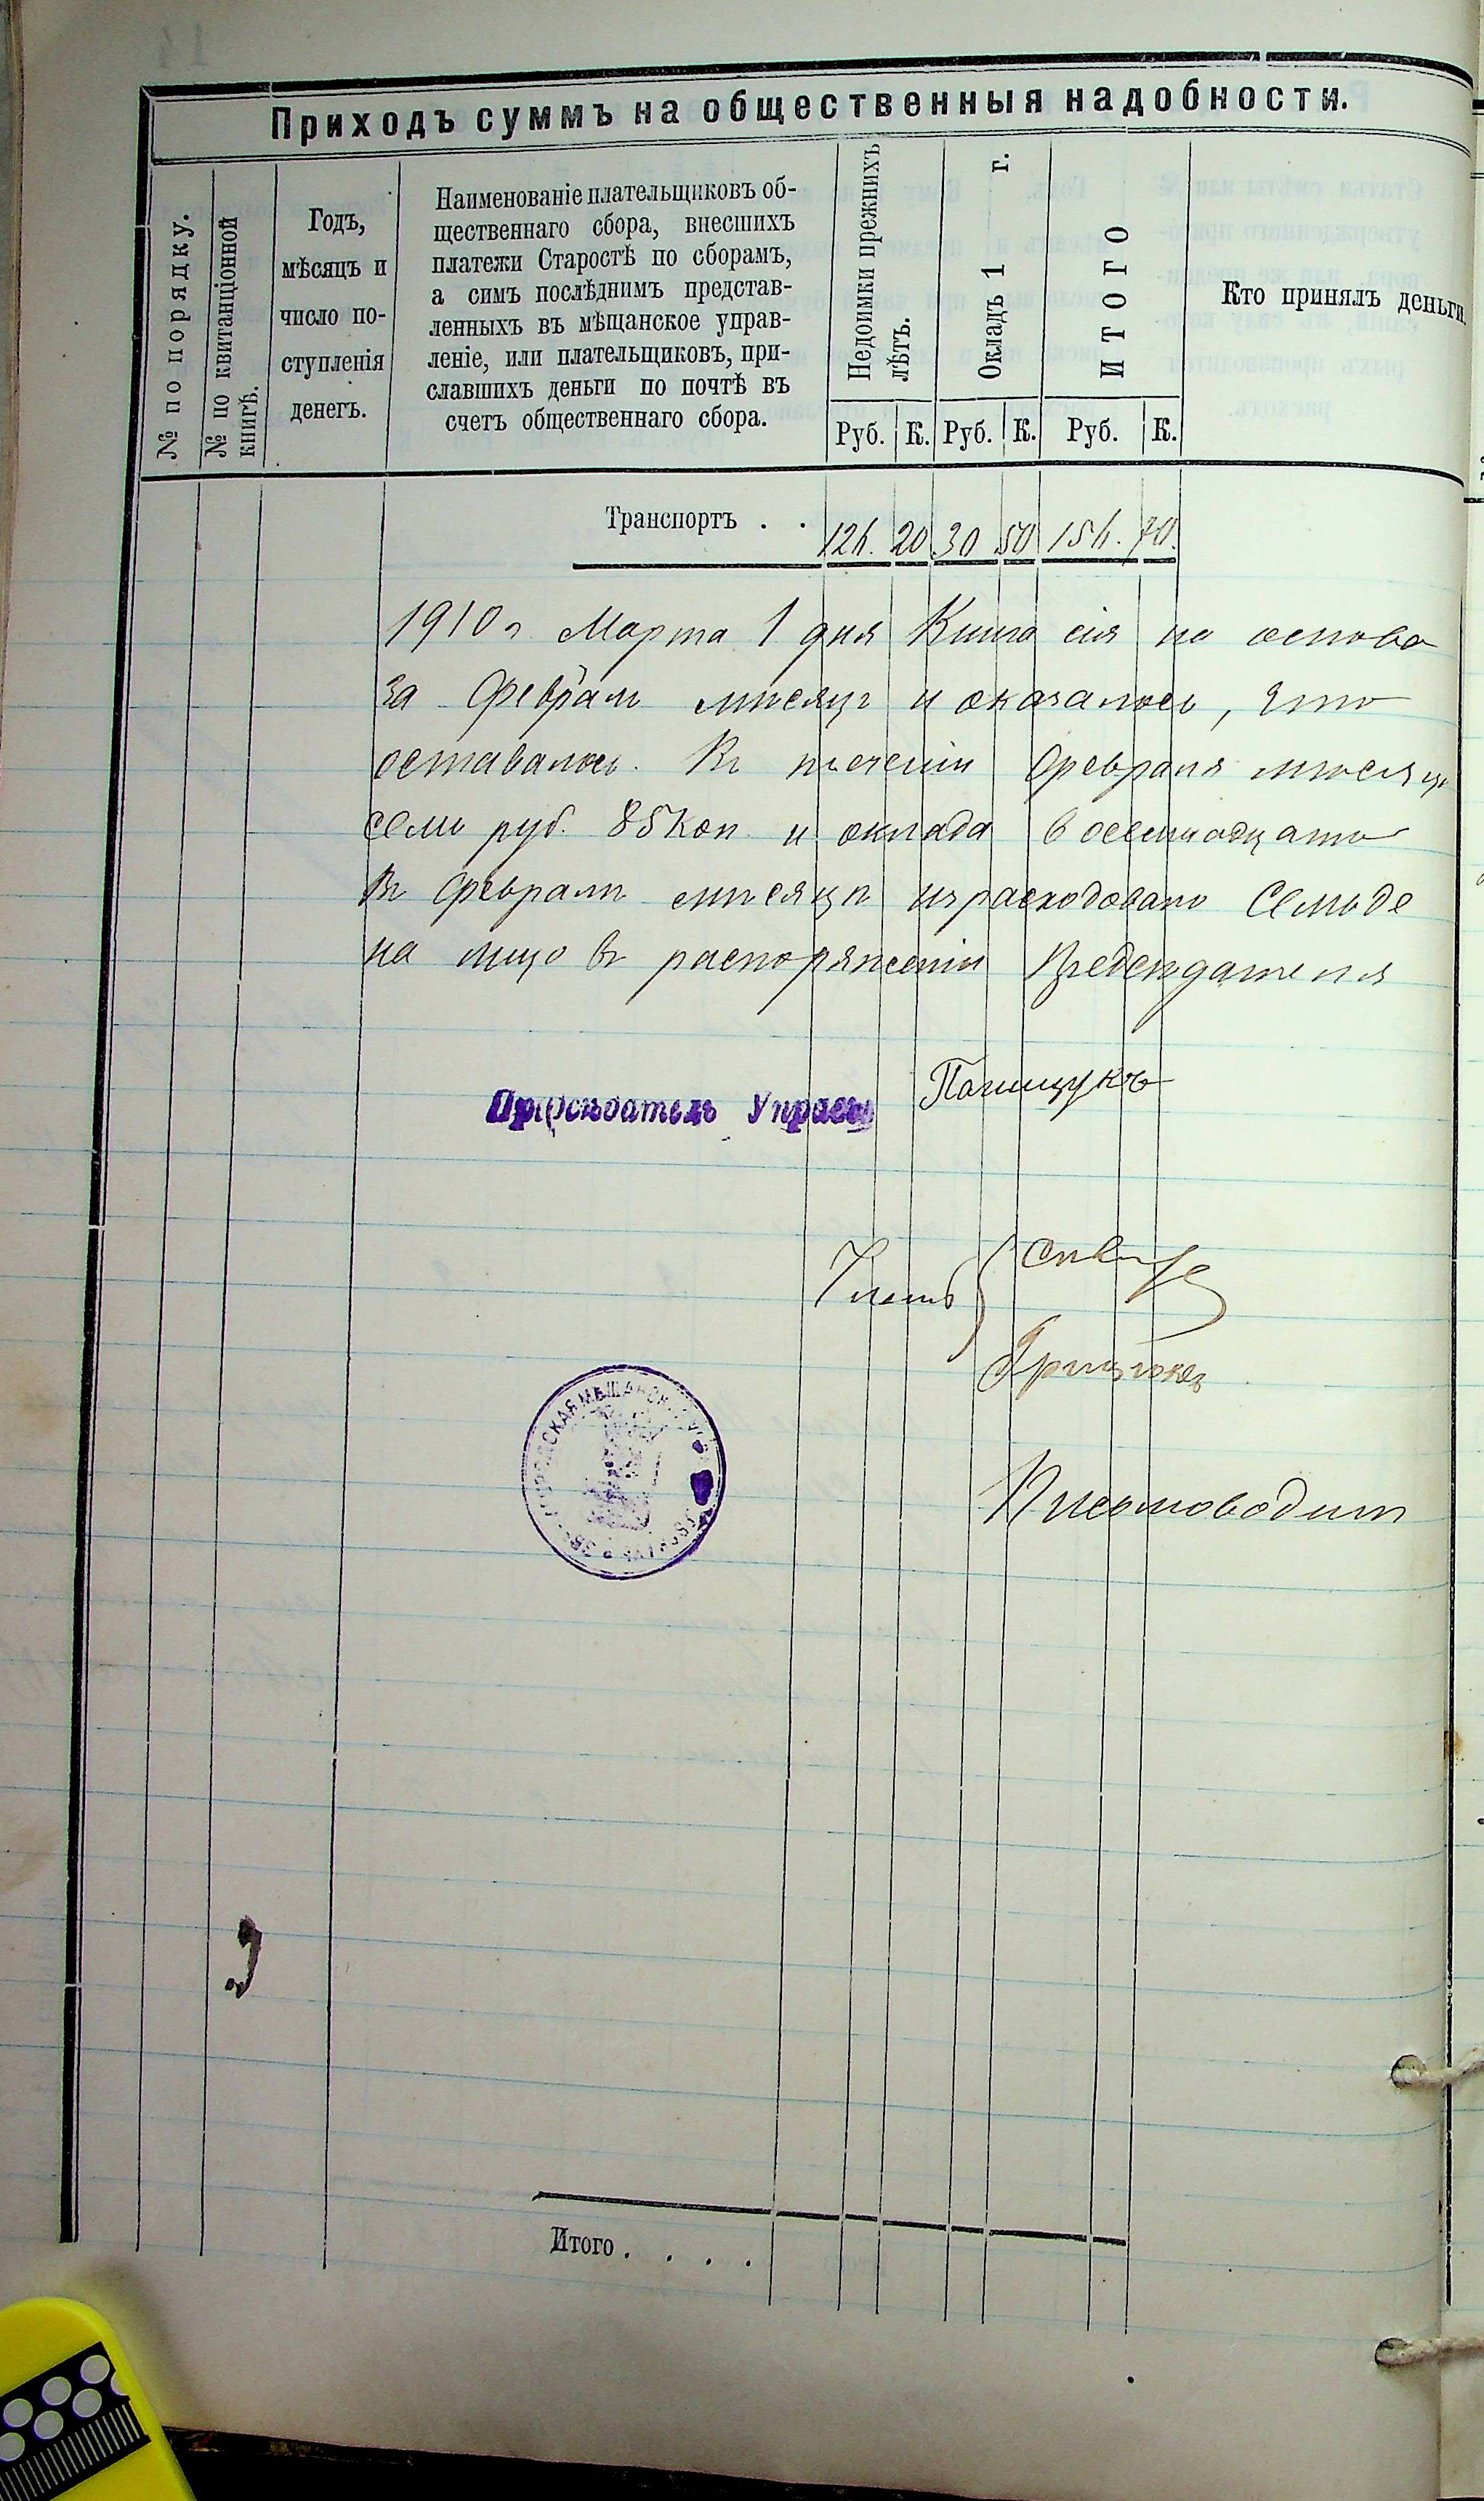 Приходъ суммъ на общественныя надобности.
№ по порядку.
№ по квитанціонной
книгѣ.
Годъ,
мѣсяцъ и
число по-
ступленія
денегъ.
Наименованіе плательщиковъ об-
щественнаго сбора, внесшихъ
платежи Старостѣ по сборамъ,
а симъ послѣднимъ представ-
ленныхъ въ мѣщанское управ-
леніе, или плательщиковъ, при-
славшихъ деньги по почтѣ въ
счетъ общественнаго сбора.
Недоимки прежнихъ
лѣтъ.
Окладъ 1 г.
ИТОГО
Кто принялъ деньги.
Руб. К. Руб. К. Руб. К.
Транспортъ . . 20 30 50 70.
1910 г. Марта 1 дня Книга сія на основа
за Февраль мѣсяцъ и оказалось, что
оставалось. Въ теченіи Февраля мѣсяца
семь руб. 85 коп. и оклада восемнадцать
Въ Февралѣ мѣсяцѣ израсходовано Семьде
на лицо въ распоряженіи Председателя
Председатель Управы
Члены
Письмоводит
Итого . . . .